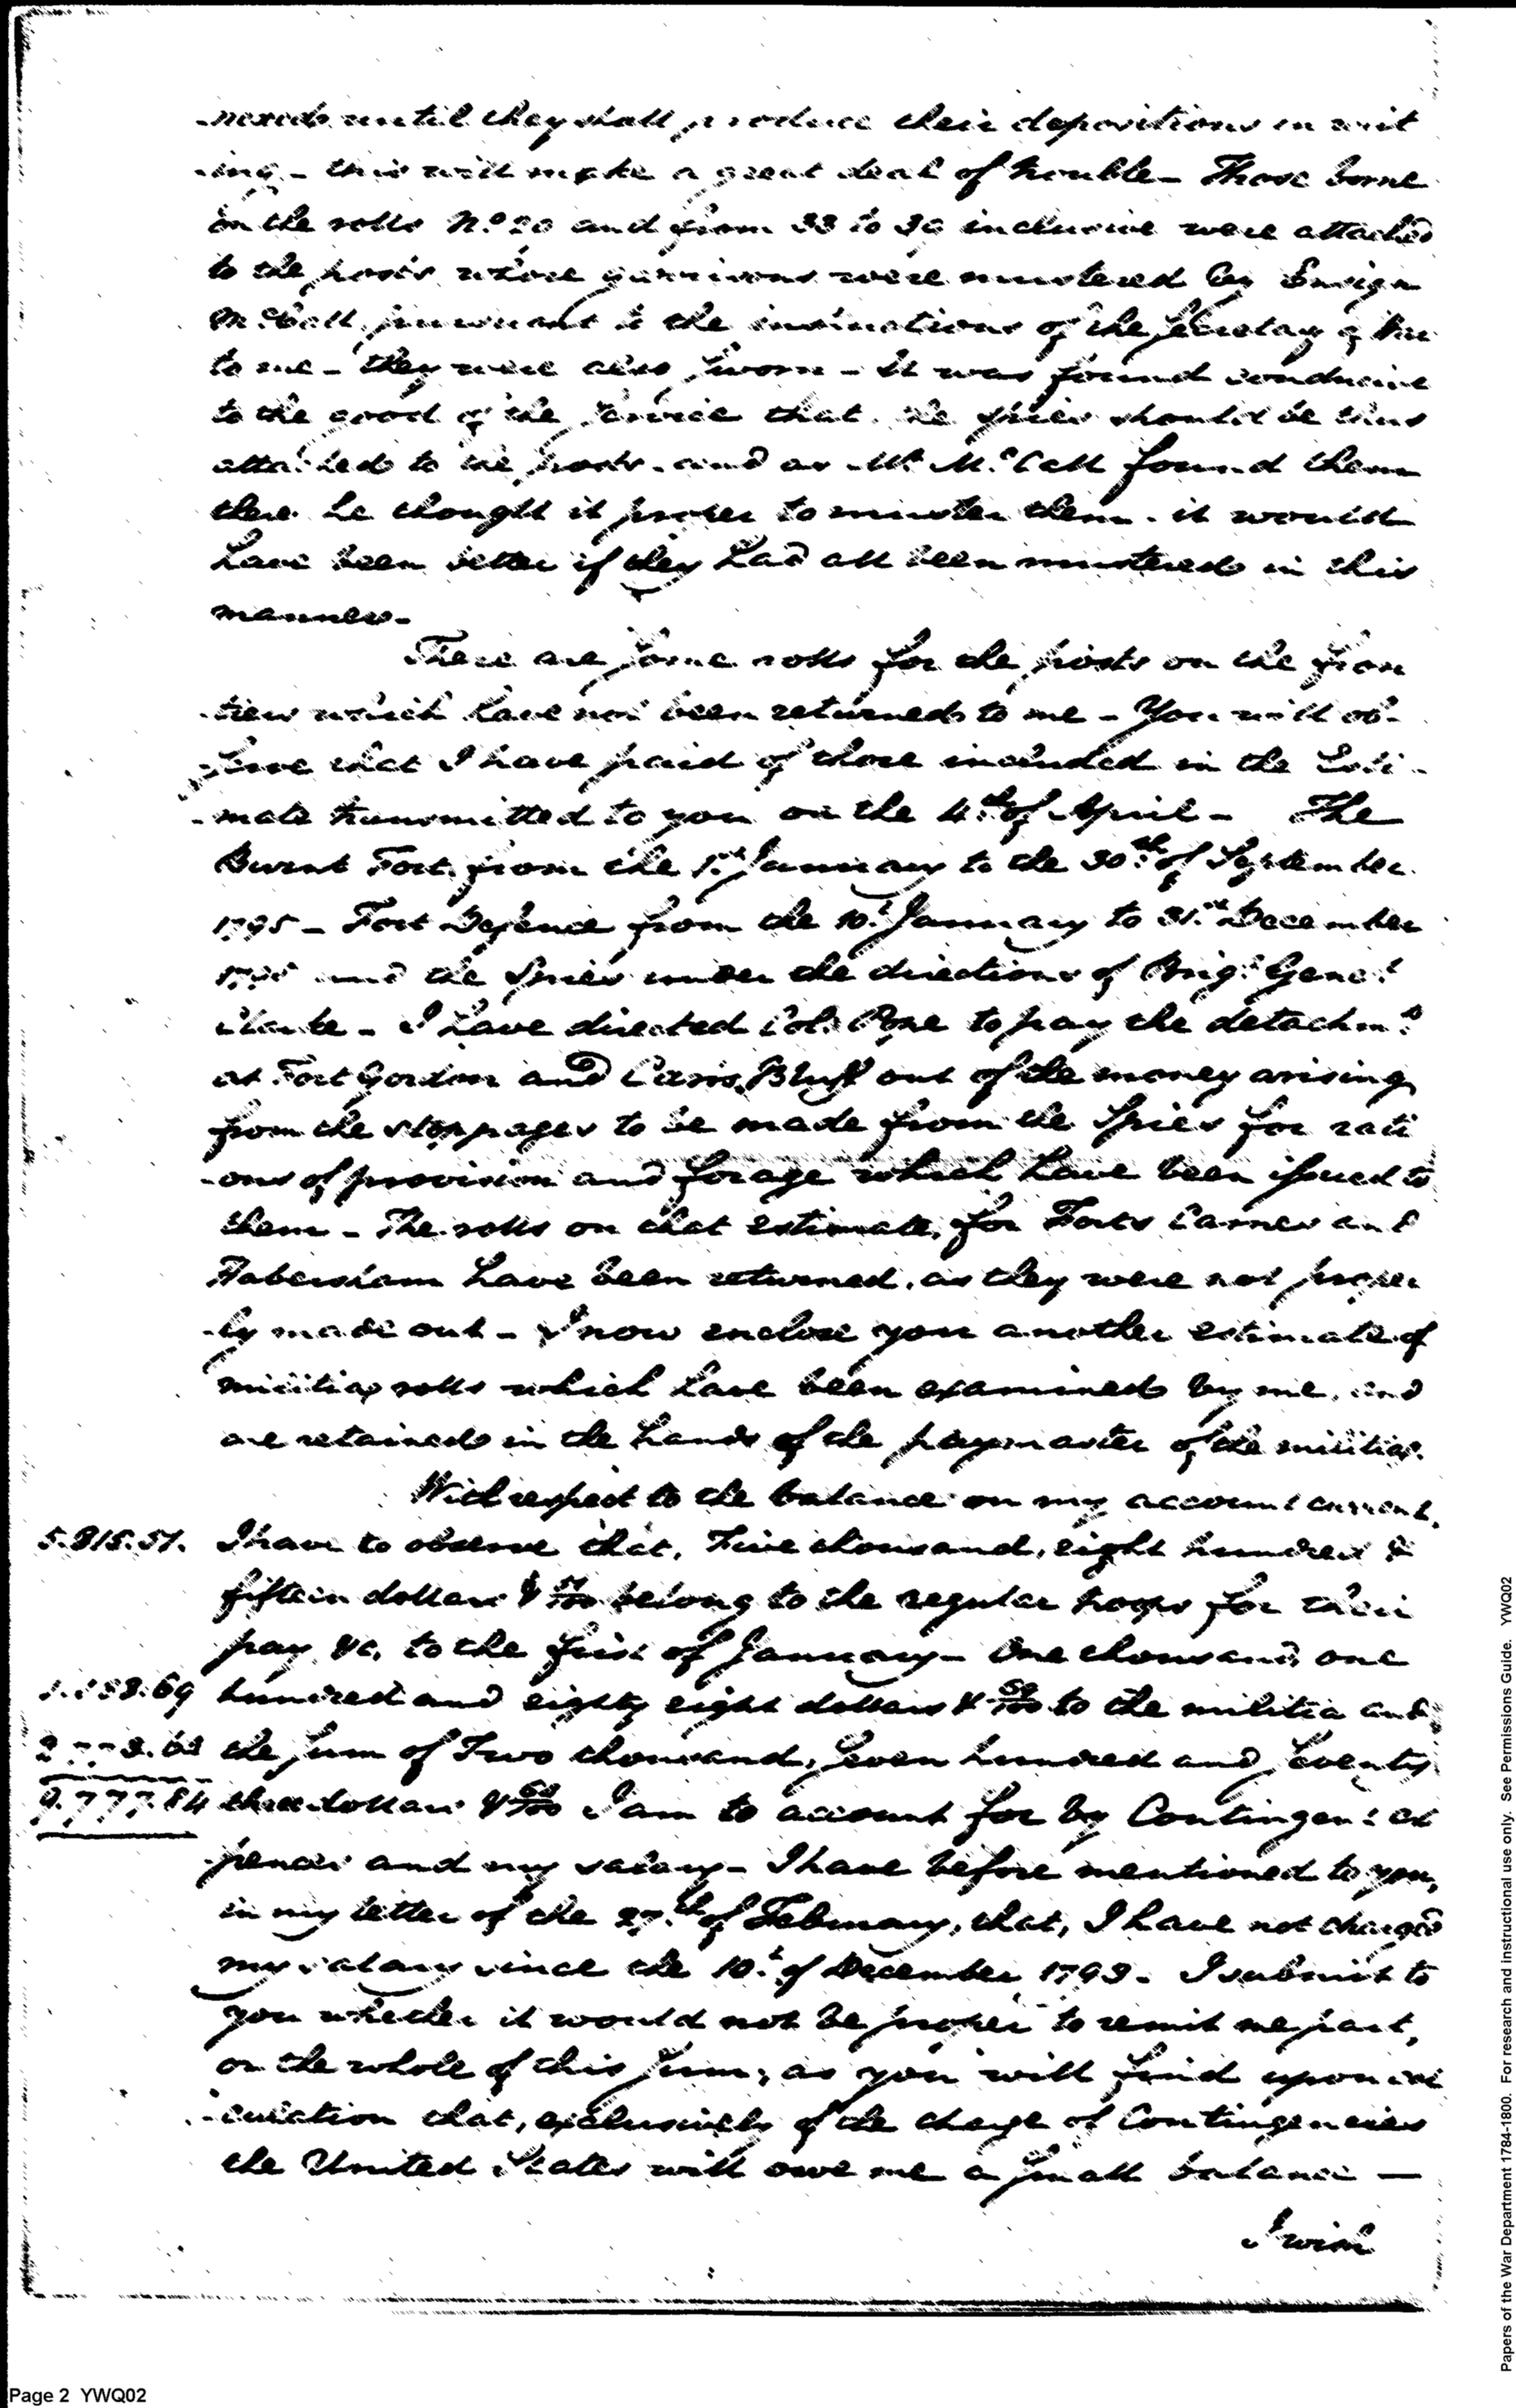 until they shall produce their depositions in writ
-ing - this will make a great deal of trouble - Those borne
on the rolls No. 20 and from 33 to inclusive were attached
to the posts whose garrisons were mustered by Ensign
McCall, pursuant to the instructions of the Secretary of War
to me - they were also sworn - It was found conducive
to the good of the service that the spies should be thus
attached to the posts. and as Mr. McCall found them
there he thought it proper to muster them. it would
have been better if they had all been mustered in this
manner -
There are some rolls for the posts on the fron
-tiers which have not been returned to me - You will ob-
-serve that I have paid of those included in the Esti-
-mate transmitted to you on the 4th of April - The
Burnt Fort, from the 1st January to the 30th of September
1795 - Fort Defence from the 10t January to 31st December
and the Spies under the directions of Brigr Generl
Clarke - I have directed Colo. Pope to pay the detachmts
at Fort Gordon and Bluff out of the money arising
from the stoppages to be made from the Spies for rati
-ons of provision and forage which have been issued to
them - The rolls on that estimate, for Forts Carnes and
Habersham have been returned, as they were not proper
-ly made out - I now enclose you another estimate of
militia rolls which have been examined by me, and
are retained in the hands of the paymaster of the militia.
With respect to the balance on my account current,
5.815.57. I have to observe that, Five thousand, eight hundred &
fifteen dollars & 57/100 belong to the regular troops for their
pay &c, to the first of January - One thousand, one
1.188.69 hundred and eighty eight dollars & 69/100 to the militia and
the sum of Two thousand, seven hundred and seventy
9.777.84 three dollars & I am to account for by Contingent ex
pences and my salary - I have before mentioned to you,
in my letter of the 27th of February, that, I have not charged
my salary since the 10t of December 1793. I submit to
you whether it would not be proper to remit me part,
or the whole of this sum; as you will find upon cal
-culation that, exclusively of the charge of Contingencies
the United States will owe me a small balance -
I wish
Papers of the War Department 1784-1800. For research and instructional use only. See Permissions Guide. YWQ02
Page 2 YWQ02